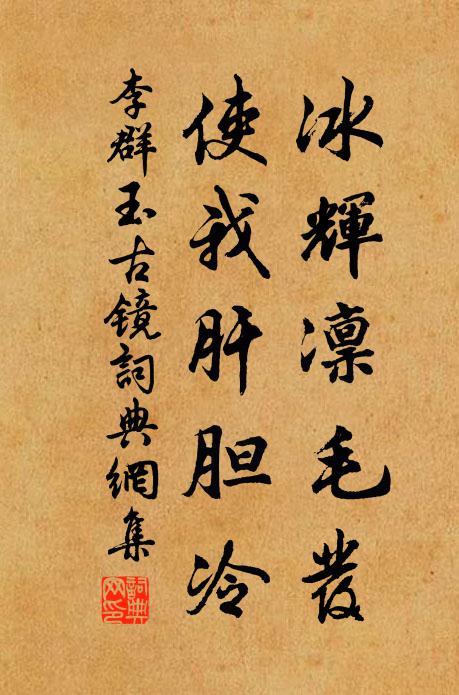 冰輝凛毛發
使我肝胆冷
李群玉古镜詞典網集
詞典网印